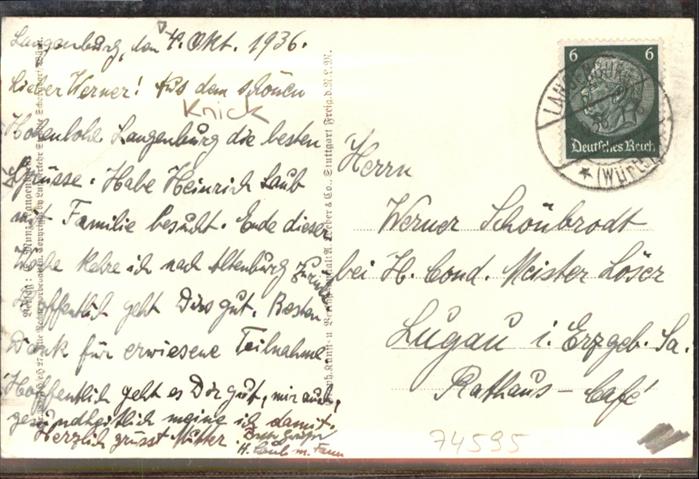 Langenburg, den 4. Okt. 1936.
Lieber Werner! Aus dem schönen
Knick
Hohenlohe Langenburg die besten
Grüsse. Habe Heinrich Laub
mit Familie besucht. Ende dieser
Woche kehre ich nach Altenburg zurück
Hoffentlich geht Dirs gut. Besten
Dank für erwiesene Teilnahme.
Hoffentlich geht es Dir gut, mir auch,
gesundheitlich meine ich damit.
Herzlich grüsst Mutter.
H. Laub m. Fam
Stuttgart
6 6
Deutsches Reich
LANGENBURG
(WÜRTT)
Herrn
Werner Schönbrodt
bei H. Cond. Meister Löser
Lugau i. Erzgeb. Sa.
Rathaus-Café
74595